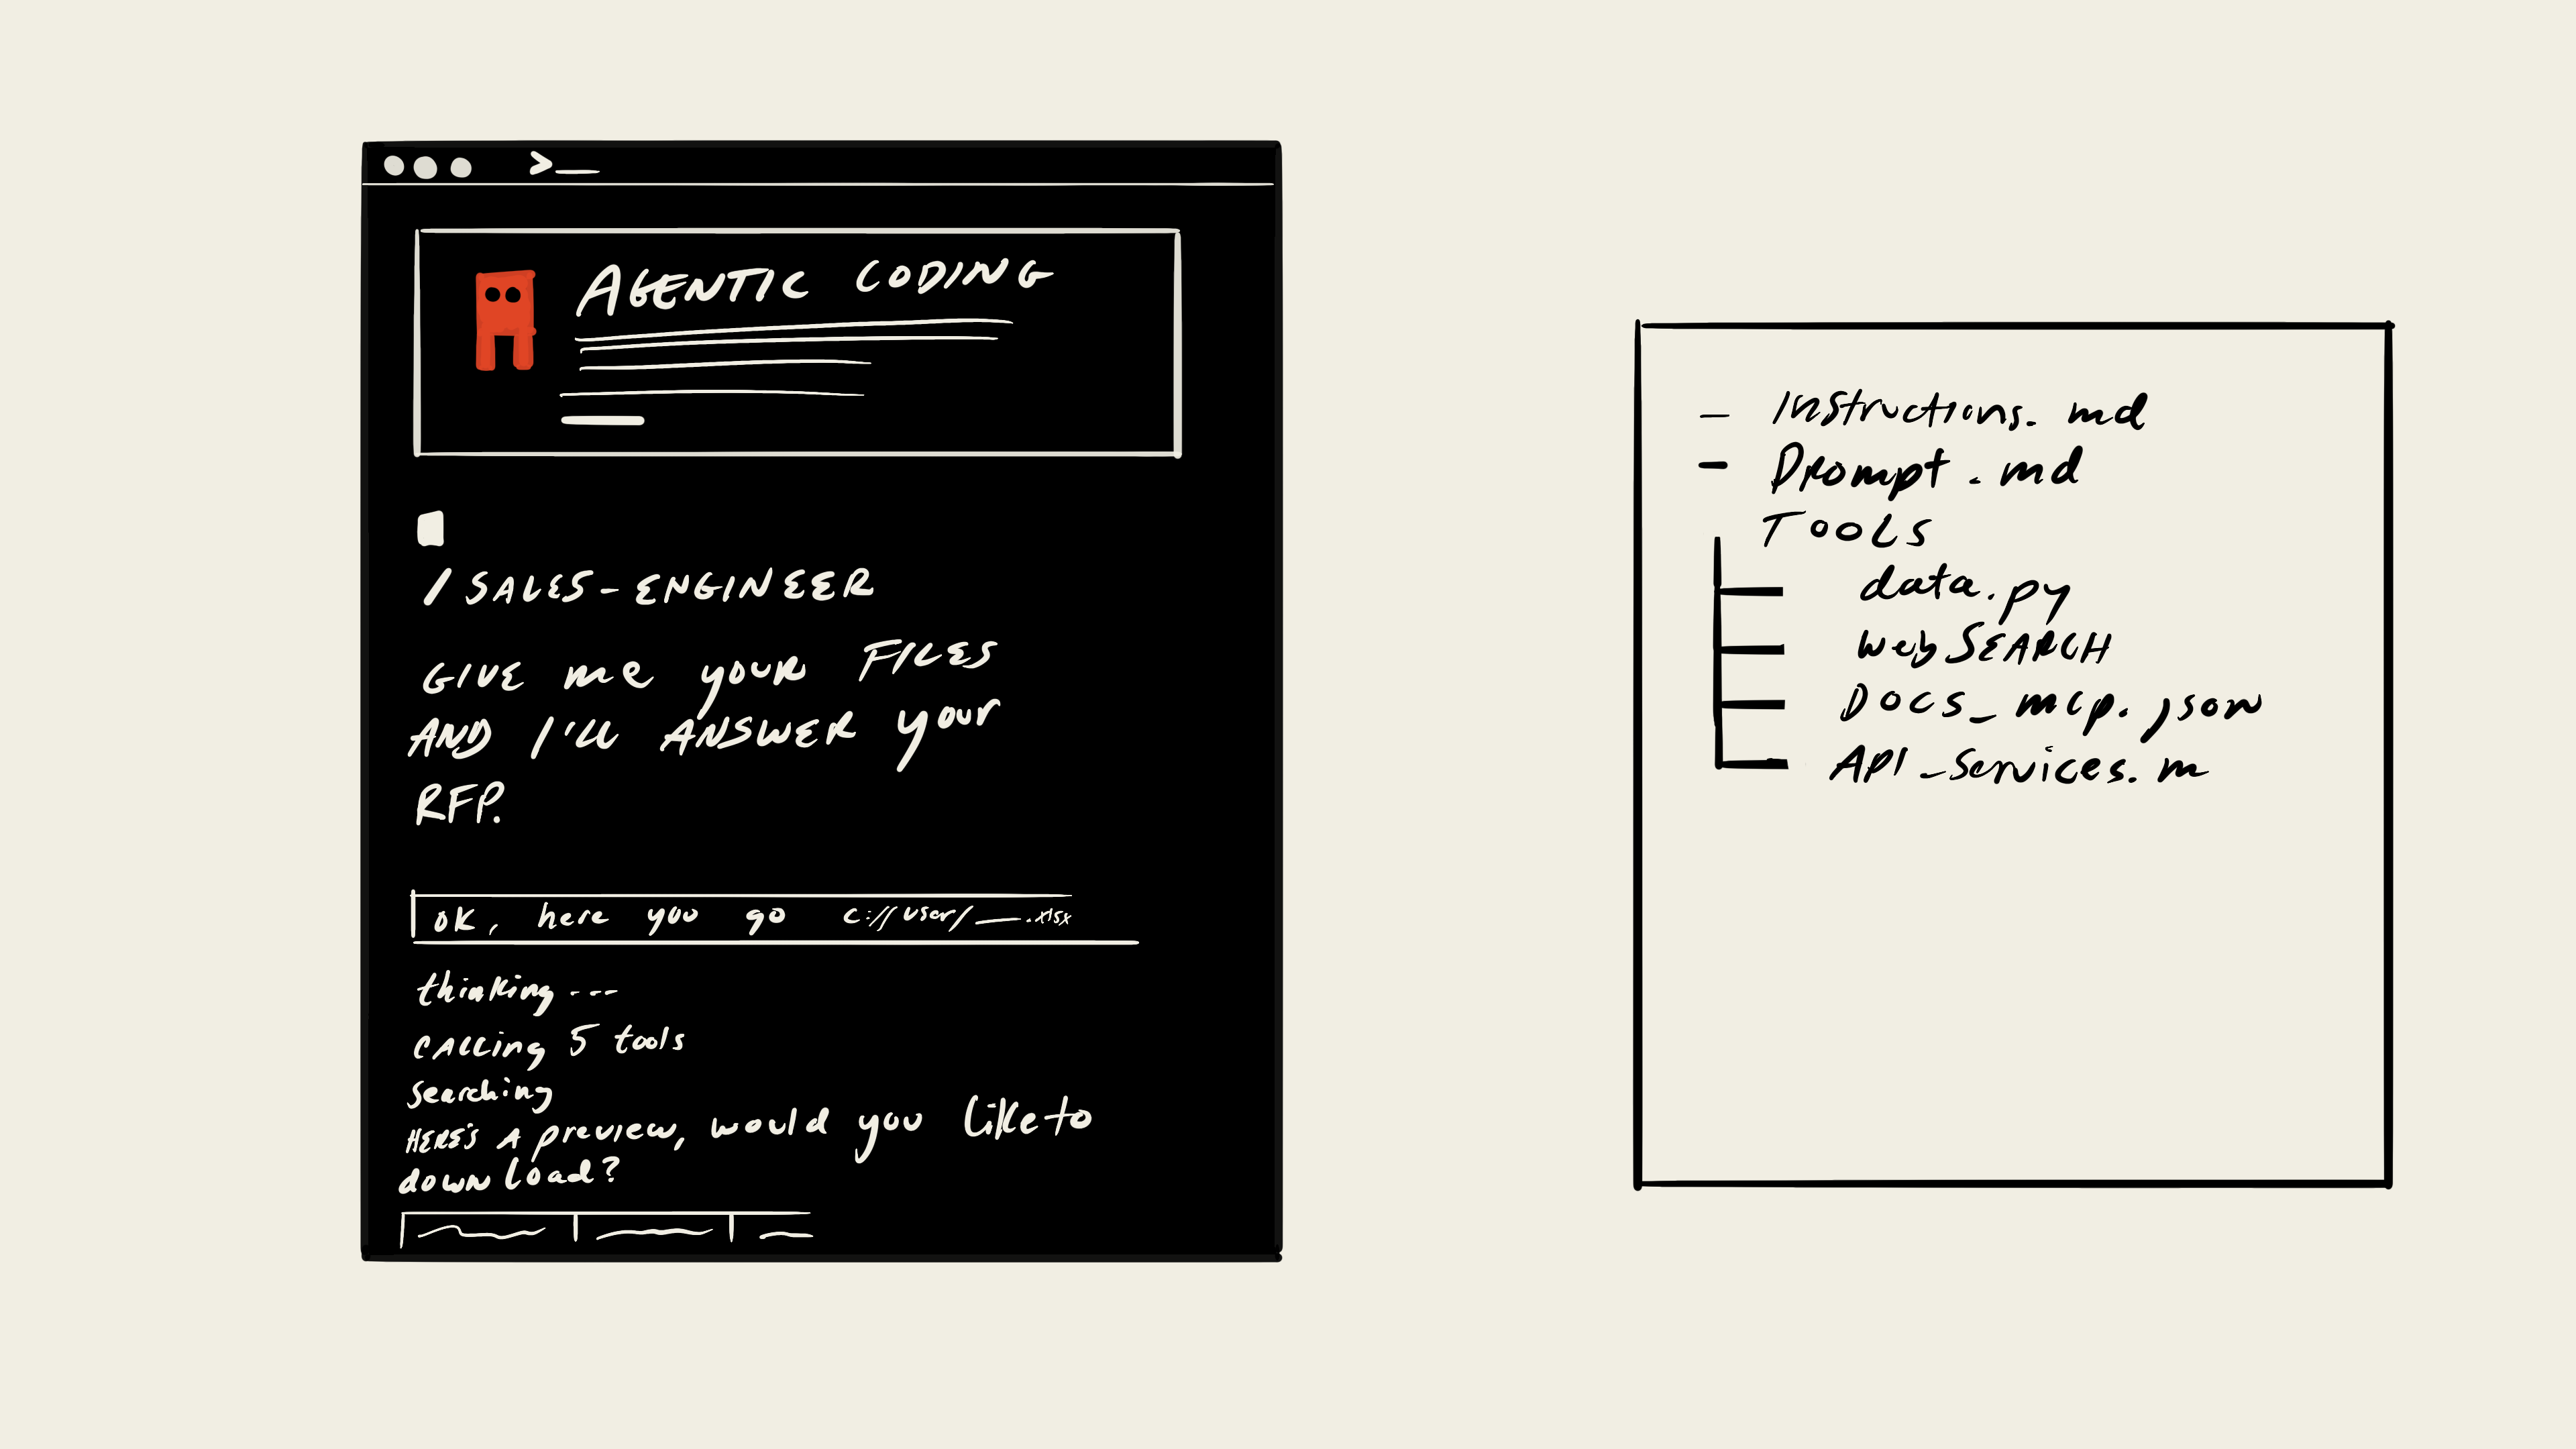 >_
AGENTIC CODING
/SALES-ENGINEER
GIVE me your FILES
AND I'll ANSWER your
RFP.
OK, here you go c://user/___.xlsx
thinking ---
CALLing 5 tools
Searching
HERE'S A preview, would you like to
download?
- Instructions.md
- Prompt.md
TOOLS
data.py
webSEARCH
DOCS_mcp.json
API_services.m